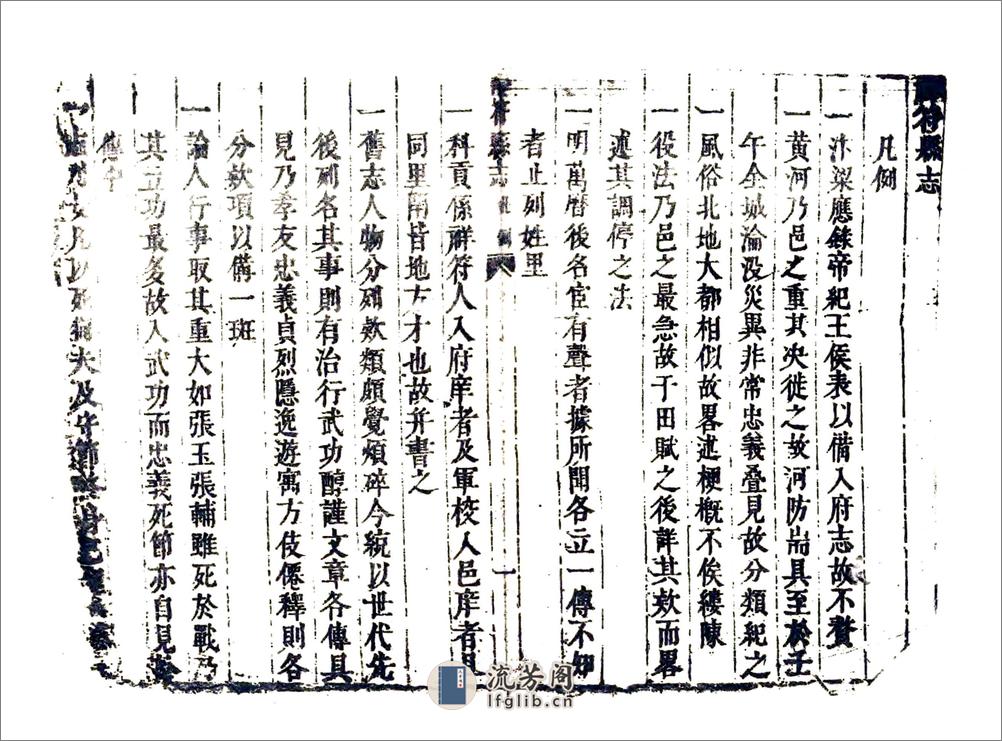 符縣志
凡例
一汴梁應錄帝紀王侯表以備入府志故不贅
一黃河乃邑之重其决徙之故河防耑具至於壬
午全城淪没災異非常忠義叠見故分類紀之
一風俗北地大都相似故畧述梗概不俟縷陳
一役法乃邑之最急故于田賦之後詳其欵而畧
述其調停之法
一明萬曆後名宦有聲者據所聞各立一傳不知
者止列姓里
符縣志
一
一科貢係祥符人入府庠者及軍校人邑庠者
同里閈皆地方才也故并書之
一舊志人物分列欵類頗覺煩碎今統以世代先
後列名其事則有治行武功醇謹文章各傳具
見乃孝友忠義貞烈隱逸遊寓方伎僊釋則各
分欵項以備一斑
一論人行事取其重大如張玉張輔雖死於戰乃
其立功最多故入武功而忠義死節亦自見於
傳中
一
凡以死
夫及守節
流芳阁
lfglib.cn